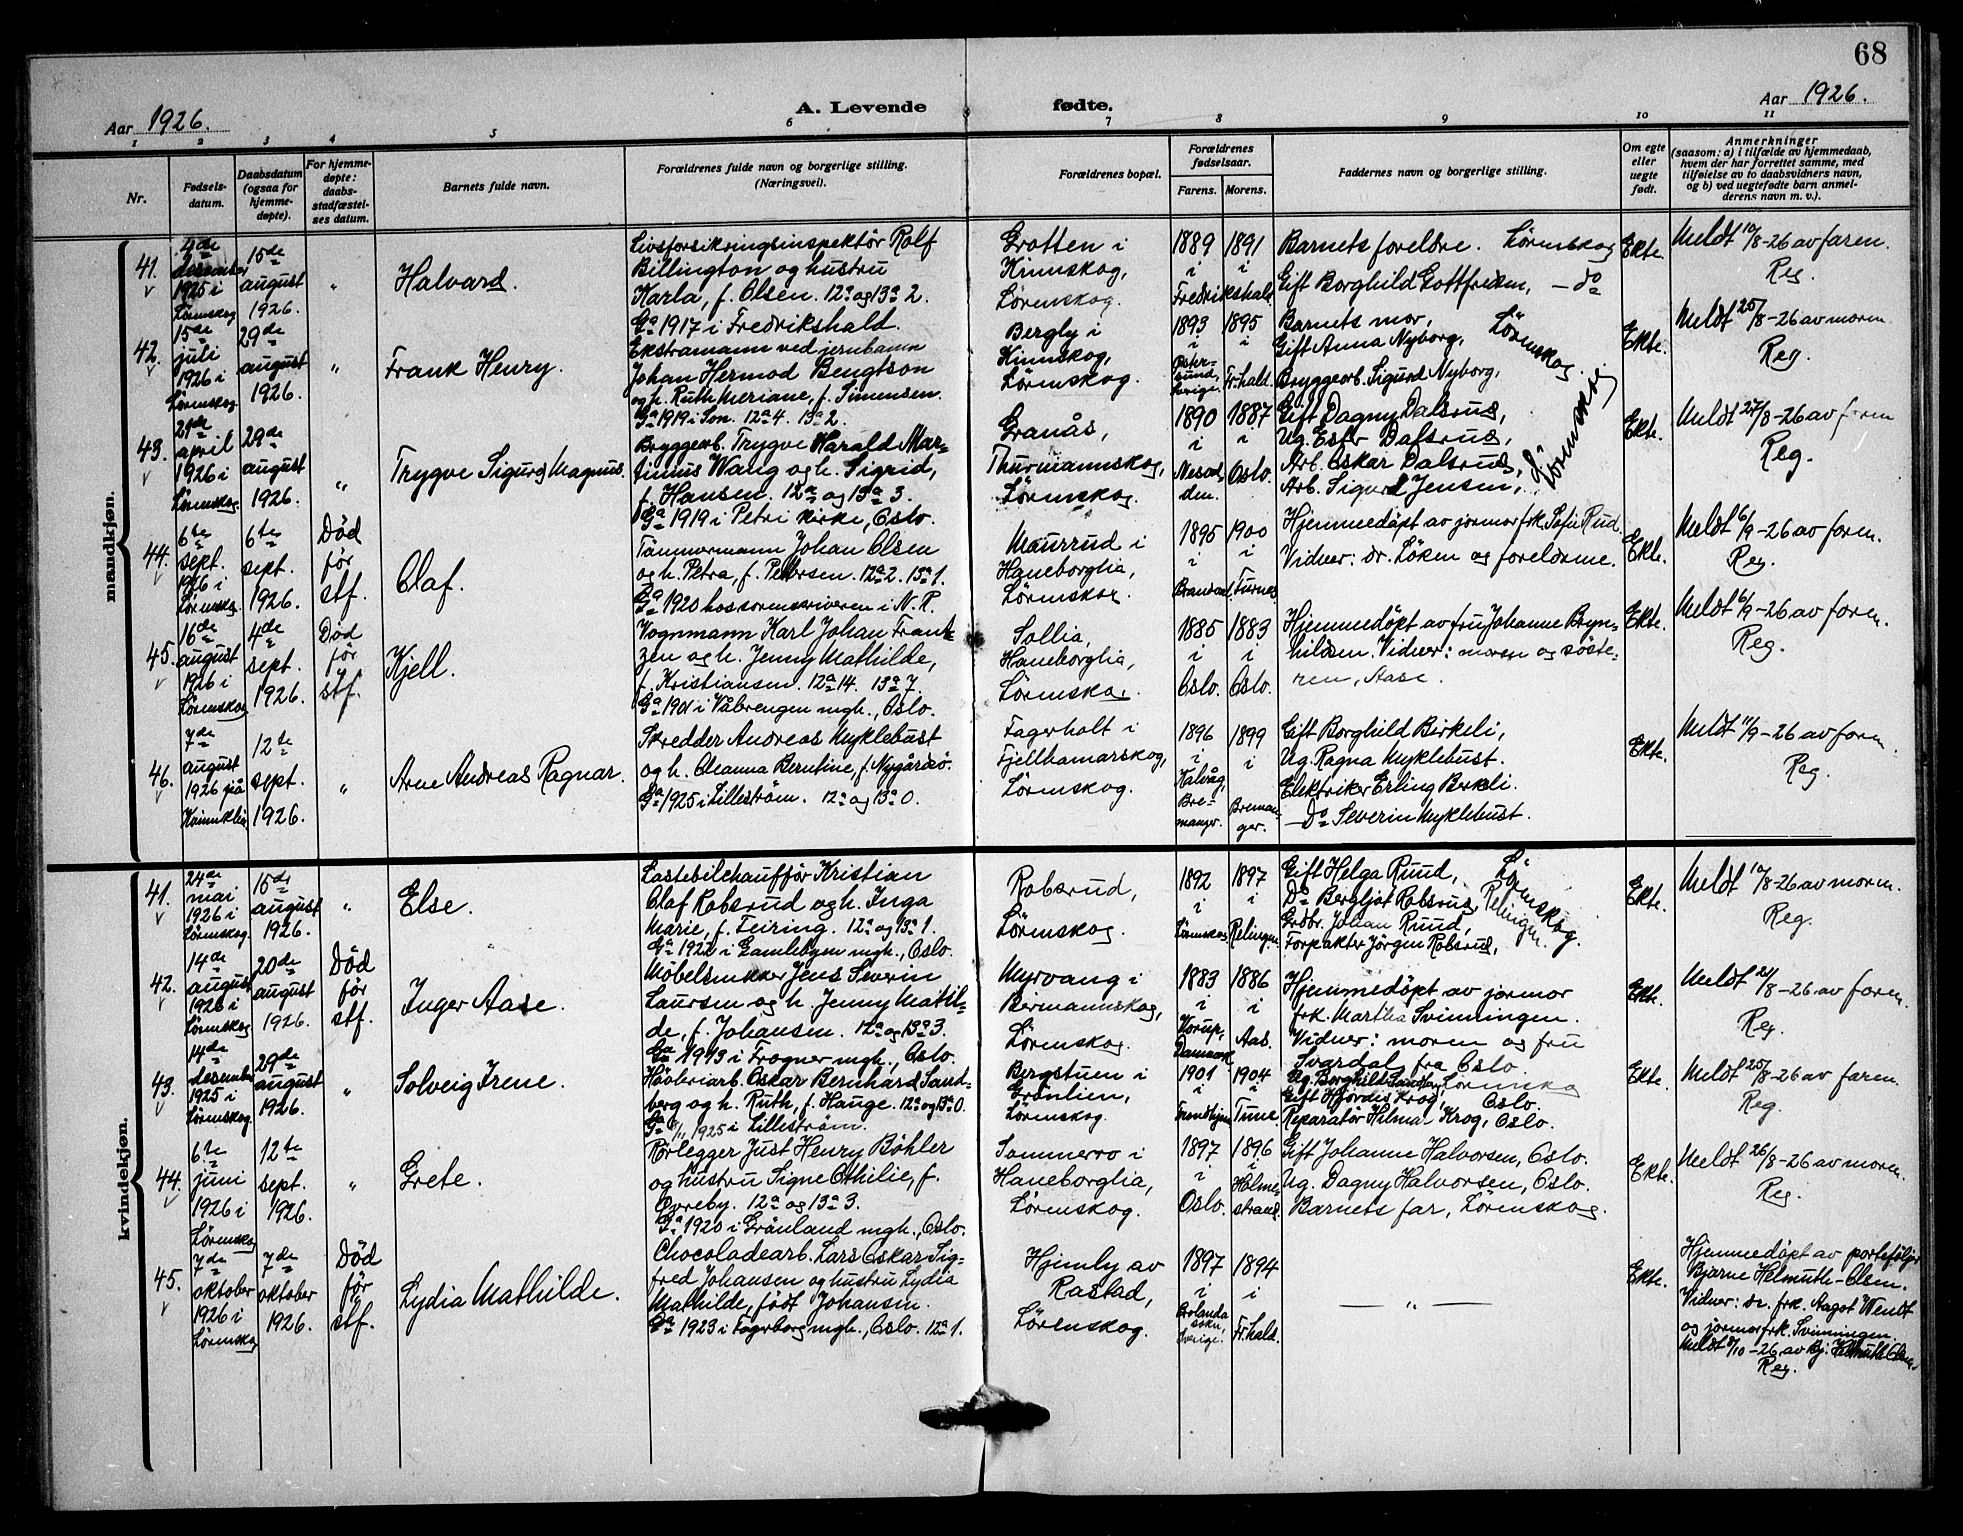 68
Aar 1926.
A. Levende fødte.
Aar 1926.
1 2 3 4 5 6 7 8 9 10 11
Nr.
Fødsels-
datum.
Daabsdatum
(ogsaa for
hjemme-
døpte).
For hjemme-
døpte:
daabs-
stadfæstel-
ses datum.
Barnets fulde navn.
Forældrenes fulde navn og borgerlige stilling.
(Næringsvei).
Forældrenes bopæl.
Forældrenes
fødselsaar.
Farens. Morens.
Faddernes navn og borgerlige stilling.
Om egte
eller
uegte
født.
Anmerkninger
(saasom: a) i tilfælde av hjemmedaab,
hvem der har forrettet samme, med
tilføielse av to daabsvidners navn,
og b) ved uegtefødte barn anmel-
derens navn m. v.).
mandkjøn.
41.
4de
desember
1925 i
Lørenskog
15de
august
1926.
"
Halvard.
Livsforsikringsinspektør Rolf
Billington og hustru
Karla, f. Olsen. 12a og 13a 2.
Ga 1917 i Fredrikshald.
Grotten i
Kinnskog,
Lørenskog.
1889 1891
i i
Fredrikshald
Barnets foreldre. Lørenskog
Gift Borghild Gottfredsen, - do
Ekte.
Meldt 10/8-26 av faren.
Reg.
42.
15de
juli
1926 i
Lørenskog
29de
august
1926.
"
Frank Henry.
Ekstramann ved jernbanen
Johan Hermod Bengtson
og h. Ruth Meriane, f. Simensen.
Ga 1919 i Son. 12a 4. 13a 2.
Bergly i
Kinnskog,
Lørenskog.
1893 1895
i i
Øster-
sund,
Sverige. Fr.hald.
Barnets mor,
Gift Anna Nyborg,
Bryggearb. Sigurd Nyborg,
Lørenskog.
Ekte.
Meldt 25/8-26 av moren
Reg.
43.
21de
april
1926 i
Lørenskog.
29de
august
1926.
"
Trygve Sigurd Magnus.
Bryggearb. Trygve Harald Mar-
tinius Wang og h. Sigrid,
f. Hansen. 12a og 13a 3.
Ga 1919 i Petri kirke, Oslo.
Granås,
Thurmannskog,
Lørenskog.
1890 1887
i i
Nesod-
den. Oslo.
Gift Dagny Dalsrud,
Ug. Ester Dalsrud,
Arb. Oskar Dalsrud,
Arb. Sigurd Jensen,
Lørenskog
Ekte.
Meldt 27/8-26 av faren
Reg.
44.
6te
sept.
1926 i
Lørenskog
6te
sept.
1926.
Død
før
stf.
Olaf.
Tømmermann Johan Olsen
og h. Petra, f. Petersen. 12a 2. 13a 1.
Ga 1920 hos sorenskriveren i N. R.
Maurrud i
Haneborglia,
Lørenskog.
1895 1900
i i
Furnes
Hjemmedøpt av jormor frk. Sofie Rud.
Vidner: dr. Løken og foreldrene.
Ekte.
Meldt 6/9-26 av faren.
Reg.
45.
16de
august
1926 i
Lørenskog
4de
sept.
1926.
Død
før
stf.
Kjell.
Vognmann Karl Johan Frant-
zen og h. Jenny Mathilde,
f. Kristiansen. 12a 14. 13a 7.
Ga 1901 i Vålerengen mgh., Oslo.
Sollia,
Haneborglia,
Lørenskog.
1885 1883
i i
Oslo. Oslo.
Hjemmedøpt av fru Johanne Bryn-
hildsen. Vidner: moren og søste-
ren, Aase.
Ekte.
Meldt 6/9-26 av faren.
Reg.
46.
7de
august
1926 på
12te
sept.
1926.
"
Arne Andreas Ragnar.
Skredder Andreas Myklebust
og h. Oleanna Berntine, f. Nygårdsø.
Ga 1925 i Lillestrøm. 12a og 13a 0.
Fagerholt i
Fjellhamarskog,
Lørenskog.
1896 1899
i i
Kalvåg,
Bre-
manger. Breman-
ger.
Gift Borghild Birkeli,
Ug. Ragna Myklebust.
Elektriker Erling Birkeli.
- Do Severin Myklebust.
Ekte.
Meldt 11/9-26 av faren.
Reg.
kvindekjøn.
41.
24de
mai
1926 i
Lørenskog.
15de
august
1926.
"
Else.
Lastebilchauffør Kristian
Olaf Robsrud og h. Inga
Marie, f. Feiring. 12a og 13a 1.
Ga 1922 i Gamlebyen mgh., Oslo.
Robsrud,
Lørenskog.
1892 1897
i i
Lørenskog Relingen.
Gift Helga Ruud,
Do Bergljot Robsrud,
Grdbr. Johan Ruud,
Forpakter Jørgen Robsrud,
Lørenskog.
Relingen.
Ekte.
Meldt 10/8-26 av moren.
Reg.
42.
14de
august
1926 i
Lørenskog
20de
august
1926.
Død
før
stf.
Inger Aase.
Møbelsnekker Jens Severin
Laursen og h. Jenny Matil-
de, f. Johansen. 12a og 13a 3.
Ga 1913 i Frogner mgh., Oslo.
Myrvang i
Bermannskog,
Lørenskog.
1883 1886
i i
Danmark Aas.
Hjemmedøpt av jormor
frk. Martha Svinningen.
Vidner: moren og fru
Svardal fra Oslo.
Ekte.
Meldt 21/8-26 av faren.
Reg.
43.
14de
desember
1925 i
Lørenskog.
29de
august
1926.
"
Solveig Irene.
Høvleriarb. Oskar Bernhard Sand-
berg og h. Ruth, f. Hauge. 12a og 13a 0.
1925 i Lillestrøm.
Bergstuen i
Grønlien,
Lørenskog.
1901 1904
i i
Trondhjem Tune.
Ug. Borghild Sandberg, Lørenskog
Gift Hjørdis Krog, Oslo.
Reparatør Hilmar Krog, Oslo.
Ekte.
Meldt 25/8-26 av faren.
Reg.
44.
6te
juni
1926 i
Lørenskog
12te
sept.
1926.
"
Grete.
Rørlegger Just Henry Bøhler
og hustru Signe Othilie, f.
Øvreby. 12a og 13a 3.
Ga 1920 i Grønland mgh., Oslo.
Sommerro i
Haneborglia,
Lørenskog.
1897 1896
i i
Oslo. Holme-
strand.
Gift Johanne Halvorsen, Oslo.
Ug. Dagny Halvorsen, Oslo.
Barnets far, Lørenskog.
Ekte.
Meldt 26/8-26 av moren.
Reg.
45.
7de
oktober
1926 i
Lørenskog
7de
oktober
1926.
Død
før
stf.
Lydia Mathilde.
Chocoladearb. Lars Oskar Sig-
fred Johansen og hustru Lydia
Mathilde, født Johansen.
Ga 1923 i Fagerborg mgh., Oslo. 12a 1.
Hjemly av
Rastad,
Lørenskog.
1897 1894
i i
sokn,
Sverige. Fr.hald.
- " -
Ekte.
Hjemmedøpt av portefølje
Bjarne Helmuth-Olsen.
Vidner: dr. frk. Aagot Wendt
og jormor frk. Svinningen.
Meldt 8/10-26 av Bj. Helmuth Olsen.
Reg.